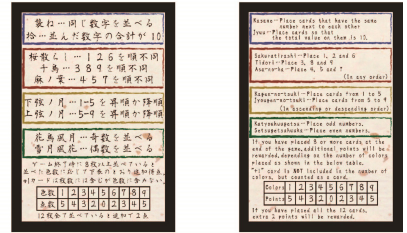 襲ね…同じ数字を並べる
拾…並んだ数字の合計が10
桜散らし…126を順不同
千鳥…389を順不同
麻ノ葉…457を順不同
下弦ノ月…1-5を昇順か降順
上弦ノ月…5-9を昇順か降順
花鳥風月…奇数を並べる
雪月風花…偶数を並べる
ゲーム終了時に8枚以上並べていると
並べた色数に応じて下表のとおり追加得点
色数 1 2 3 4 5 6 7 8 9
点数 5 4 3 2 0 2 3 4 5
12枚全て並べていると追加で2点
Kasane-Place cards that have the same
number next to each other
Jyuu-Place cards so that
the total value on them is 10.
Sakurachirashi-Place 1, 2 and 6
Tidori-Place 3, 8 and 9
Asa-no-ha-Place 4, 5 and 7
(In any order)
Kagen-no-tsuki-Place cards from 1 to 5
Jyougen-no-tsuki-Place cards from 5 to 9
(In ascending or descending order)
Katyouhuugetsu-Place odd numbers.
Setsugetsuhuuka-Place even numbers.
If you have placed 8 or more cards at the
end of the game, additional points will be
rewarded, depending on the number of colors
placed as shown in the below table.
"*1" card is NOT included in the number of
colors, but counted as a card.
Colors 1 2 3 4 5 6 7 8 9
Points 5 4 3 2 0 2 3 4 5
If you have placed all the 12 cards,
extra 2 points will be rewarded.